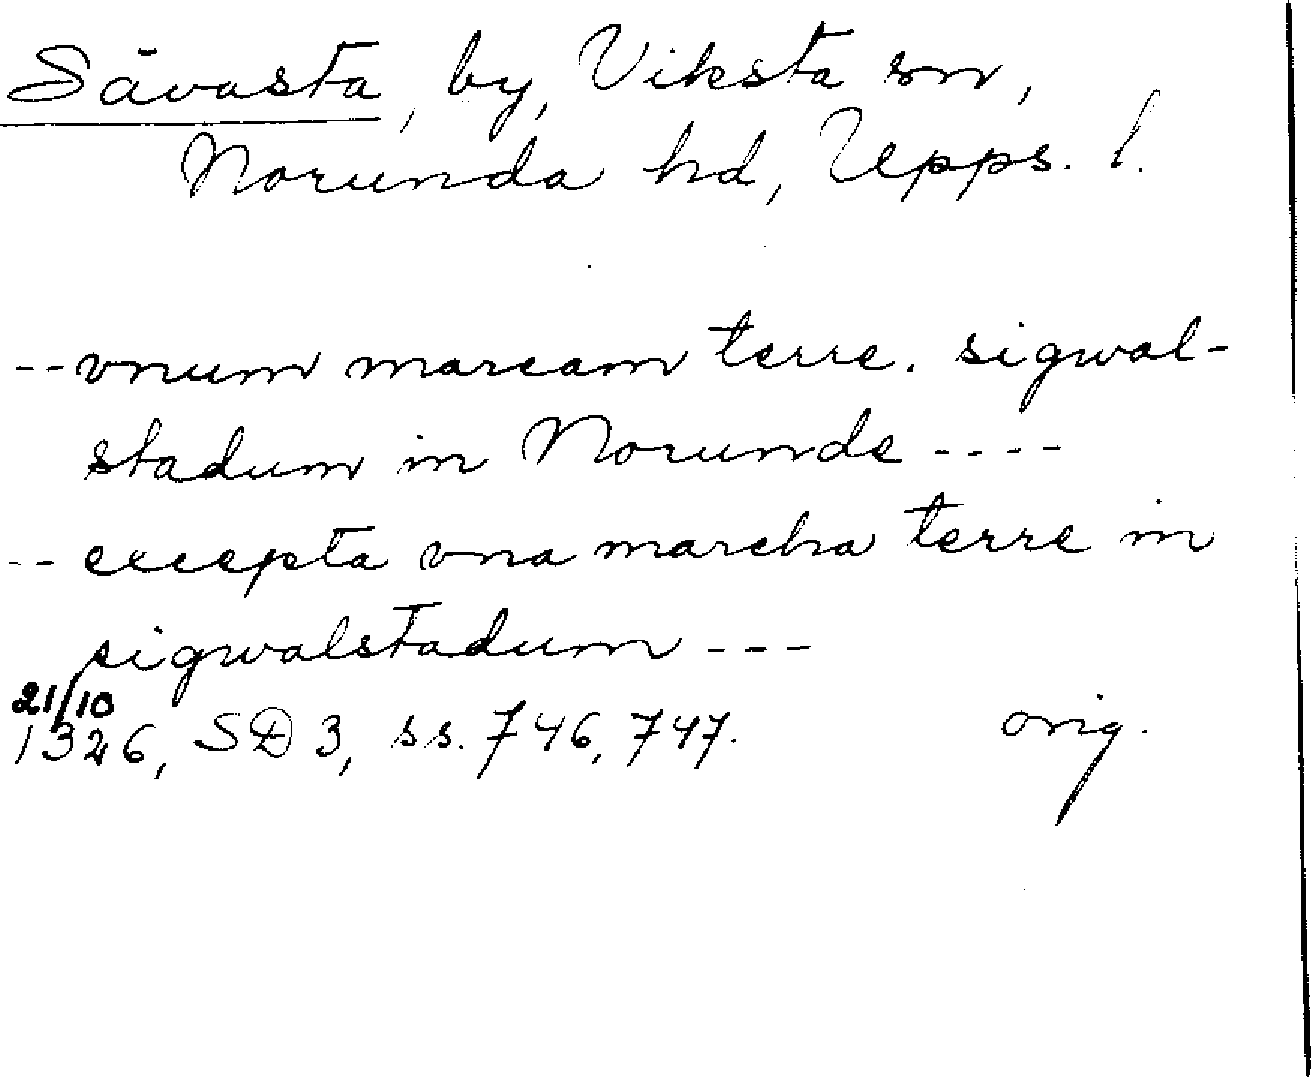 Sävasta, by, Viksta sn,
Norunda hd, Upps. l.
-- vnum marcam terre. sigwal-
stadum in Norunde ----
-- excepta vna marcha terre in
sigwalstadum ---
21/10
1326, SD 3, ss. 746, 747. orig.